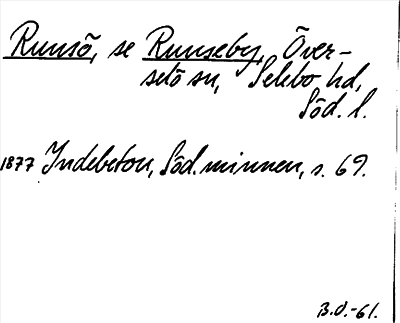 Runsö, se Runseby, Över-
selö sn, Selebo hd,
Söd. l.
1877 Indebetou, Söd. minnen, s. 69.
B.O.-61.